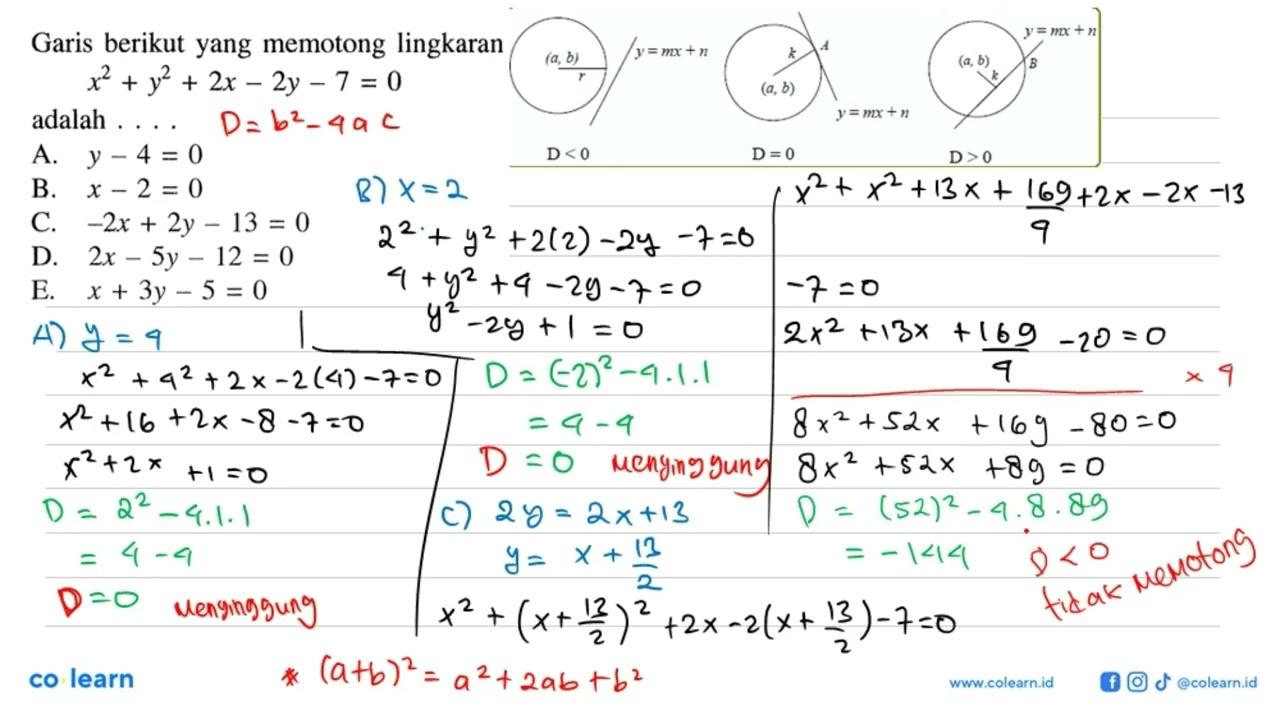 Garis berikut yang memotong lingkaran
x² + y² + 2x − 2y − 7 = 0
adalah . . . .
D = b² - 4ac
A. y − 4 = 0
B. x − 2 = 0
C. −2x + 2y − 13 = 0
D. 2x − 5y − 12 = 0
E. x + 3y − 5 = 0
(a, b)
r
y = mx + n
D < 0
k
A
(a, b)
y = mx + n
D = 0
y = mx + n
(a, b)
k
B
D > 0
A) y = 4
x² + 4² + 2x - 2(4) - 7 = 0
x² + 16 + 2x - 8 - 7 = 0
x² + 2x + 1 = 0
D = 2² - 4.1.1
= 4 - 4
D = 0 Menyinggung
B) x = 2
2² + y² + 2(2) - 2y - 7 = 0
4 + y² + 4 - 2y - 7 = 0
y² - 2y + 1 = 0
D = (-2)² - 4.1.1
= 4 - 4
D = 0 Menyinggung
C) 2y = 2x + 13
y = x + 13/2
x² + (x + 13/2)² + 2x - 2(x + 13/2) - 7 = 0
* (a+b)² = a² + 2ab + b²
x² + x² + 13x + 169/4 + 2x - 2x - 13
- 7 = 0
2x² + 13x + 169/4 - 20 = 0
x 4
8x² + 52x + 169 - 80 = 0
8x² + 52x + 89 = 0
D = (52)² - 4.8.89
= -144
D < 0
tidak memotong
co learn
www.colearn.id
@colearn.id